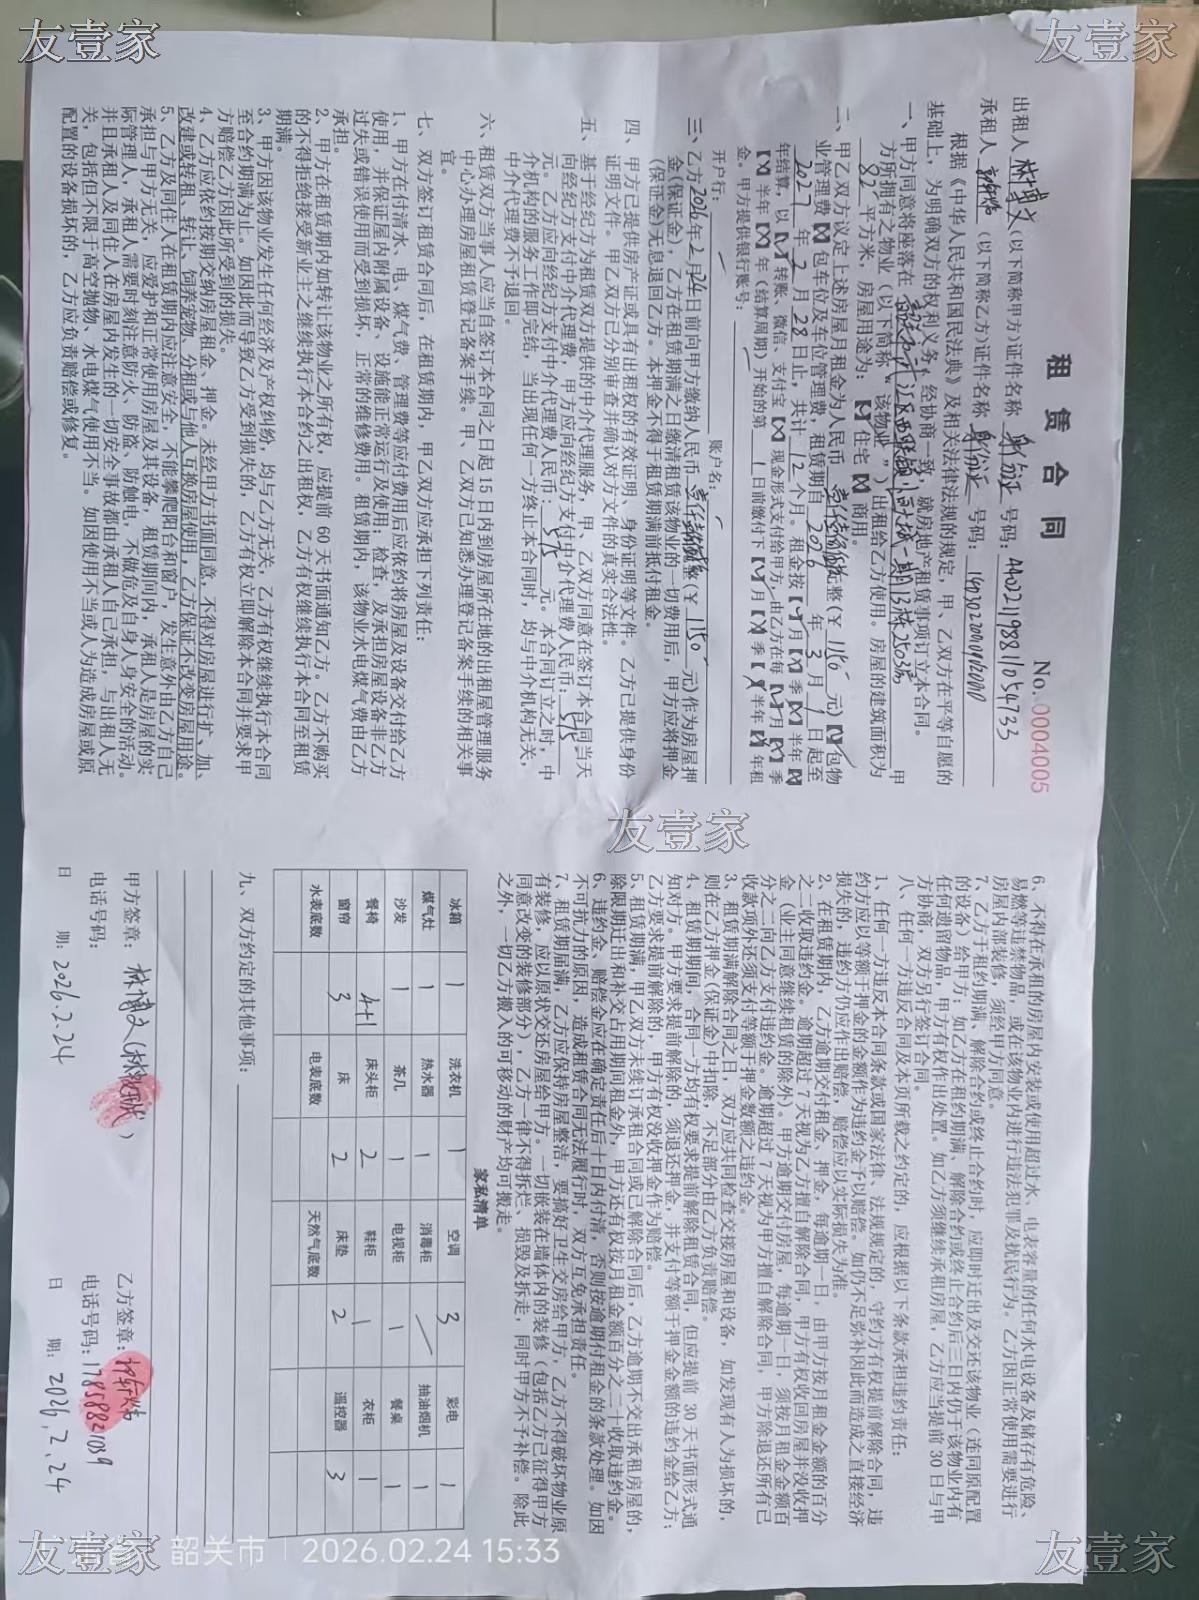 友壹家
友壹家
租 赁 合 同
No.0004005
出租人 林博文 (以下简称甲方)证件名称 身份证 号码:
承租人 (以下简称乙方)证件名称 身份证 号码:
根据《中华人民共和国民法典》及相关法律法规的规定，甲、乙双方在平等自愿的
基础上，为明确双方的权利义务，经协商一致，就房地产租赁事项订立本合同。
一、甲方同意将座落在 甲
方所拥有之物业（以下简称“该物业”）出租给乙方使用。房屋的建筑面积为
82 平方米，房屋用途为：【√】住宅【×】商用。
二、甲乙双方议定上述房屋月租金为人民币 元整(¥ 元)【√】包物
业管理费【×】包车位及车位管理费，租赁期自 2026 年 3 月 1 日起至
2027 年 2 月 28 日止，共计 12 个月。租金按【√】月【×】季【×】半年【×】
年结算，以【√】转账、微信、支付宝【×】现金形式支付给甲方，由乙方在每【√】月【×】季
【×】半年【×】年（结算周期）开始的第 1 日前缴付下【√】月【×】季【×】半年【×】年租
金。甲方提供银行账号：
开户行： 账户名：
三、乙方2026年2月24日前向甲方缴纳人民币 整(¥ 1150 元)作为房屋押
金(保证金)，乙方在租赁期满之日缴清租赁该物业的一切费用后，甲方应将押金
(保证金)无息退回乙方。本押金不得于租赁期满前抵付租金。
四、甲方已提供房产证或具有出租权的有效证明、身份证明等文件。乙方已提供身份
证明文件。甲乙双方已分别审查并确认对方文件的真实合法性。
五、基于经纪方为租赁双方提供的中介代理服务，甲、乙双方同意在签订本合同当天
向经纪方支付中介代理费，甲方应向经纪方支付中介代理费人民币： 575
元。乙方应向经纪方支付中介代理费人民币： 575 元。本合同订立之时，中
介机构的服务工作即完结，当出现任何一方终止本合同时，均与中介机构无关，
中介代理费不予退回。
六、租赁双方当事人应当自签订本合同之日起 15 日内到房屋所在地的出租屋管理服务
中心办理房屋租赁登记备案手续。甲、乙双方已知悉办理登记备案手续的相关事
宜。
七、双方签订租赁合同后，在租赁期内，甲乙双方应承担下列责任：
1、甲方在付清水、电、煤气费、管理费等应付费用后应依约将房屋及设备交付给乙方
使用，并保证屋内附属设备、设施能正常运行及使用；检查、及承担房屋设备非乙方
过失或错误使用而受到损坏，正常的维修费用。租赁期内，该物业水电煤气费由乙方
承担。
2、甲方在租赁期内如转让该物业之所有权，应提前 60 天书面通知乙方。乙方不购买
的不得拒绝接受新业主之继续执行本合约之出租权，乙方有权继续执行本合同至租赁
期满。
3、甲方因该物业发生任何经济及产权纠纷，均与乙方无关，乙方有权继续执行本合同
至合约期满为止。如因此而导致乙方受到损失的，乙方有权立即解除本合同并要求甲
方赔偿乙方因此所受到的损失。
4、乙方应依约按期交纳房屋租金、押金。未经甲方书面同意，不得对房屋进行扩、加、
改建或转租、转让、饲养宠物、分租或与他人互换房屋使用，乙方保证不改变房屋用途。
5、乙方及同住人在租赁期内应注意安全，不能攀爬阳台和窗户，发生意外由乙方自己
承担与甲方无关，应爱护和正常使用房屋及其设备，租赁期间内，承租人是房屋的实
际管理人，承租人需要时刻注意防火、防盗、防触电，不做危及自身人身安全的活动。
并且承租人及同住人在房屋内发生的一切安全事故都由承租人自己承担，与出租人无
关，包括但不限于高空抛物、水电煤气使用不当。如因使用不当或人为造成房屋或原
配置的设备损坏的，乙方应负责赔偿或修复。
友壹家
6、不得在承租的房屋内安装或使用超过水、电表容量的任何水电设备及储存有危险、
易燃等违禁物品，或在该物业内进行违法犯罪及扰民行为。乙方因正常使用需要进行
房屋内部装修，须经甲方同意。
7、乙方于租约期满、解除合约或终止合约时，应即时迁出及交还该物业（连同原配置
的设备）给甲方；如乙方在租约期满、解除合约或终止合约后三日内仍于该物业内有
任何遗留物品，甲方有权作出处置。如乙方须继续承租房屋，乙方应当提前 30 日与甲
方协商，双方另行签订合同。
八、任何一方违反合同及本项所载之约定的，应根据以下条款承担违约责任：
1、任何一方违反本合同条款或国家法律、法规规定的，守约方有权提前解除合同，违
约方应以等额于押金的金额作为违约金予以赔偿。如仍不足弥补因此而造成之直接经济
损失的，违约方仍应作出赔偿，赔偿应以实际损失为准。
2、在租赁期内，乙方逾期交付租金、押金，每逾期一日，由甲方按月租金金额的百分
之二收取违约金。逾期超过 7 天视为乙方擅自解除合同，甲方有权收回房屋并没收押
金（业主同意继续租赁的除外）。甲方逾期交付房屋，每逾期一日，须按月租金金额百
分之二向乙方支付违约金。逾期超过 7 天视为甲方擅自解除合同，甲方除退还所有已
收款项外还须支付等额于押金数额之违约金。
3、租赁期满解除合同之日，双方应共同检查交接房屋和设备，如发现有人为损坏的，
则在乙方押金(保证金)中扣除，不足部分由乙方负责赔偿。
4、租赁期期间，合同一方均有权要求提前解除租赁合同，但应提前 30 天书面形式通
知对方。甲方要求提前解除的，须退还押金，并支付等额于押金金额的违约金给乙方；
乙方要求提前解除的，甲方有权没收押金作为赔偿。
5、租赁期满，甲乙双方未续订承租合同或已解除合同后，乙方逾期不交出承租房屋的，
除限期迁出和补交占用期间租金外，甲方还有权按月租金额百分之二十收取违约金。
6、违约金、赔偿金应在确定责任后十日内付清，否则按逾期付租金的条款处理。如因
不可抗力的原因，造成租赁合同无法履行时，双方互免承担责任。
7、租赁期届满，乙方应保持房屋整洁，要搞好卫生交房给甲方，乙方不得破坏物业原
有装修，应以原状交还房屋给甲方。一切嵌装在墙体内的装修（包括乙方已征得甲方
同意改变的装修部分），乙方一律不得拆烂、损毁及拆走，同时甲方不予补偿。除此
之外，一切乙方搬入的可移动的财产均可搬走。
家私清单
冰箱 1 洗衣机 1 空调 3 彩电 1
煤气灶 1 热水器 1 消毒柜 / 抽油烟机 1
沙发 1 茶几 1 电视柜 1 餐桌 1
餐椅 4+1 床头柜 2 鞋柜 1 衣柜 1
窗帘 3 床 2 床垫 2 遥控器 3
水表底数 电表底数 天然气底数
九、双方约定的其他事项：
甲方签章： 林博文( ) 乙方签章：
电话号码： 电话号码：17858882109
日 期：2026.2.24 日 期：2026.2.24
韶关市 | 2026.02.24 15:33
友壹家
友壹家